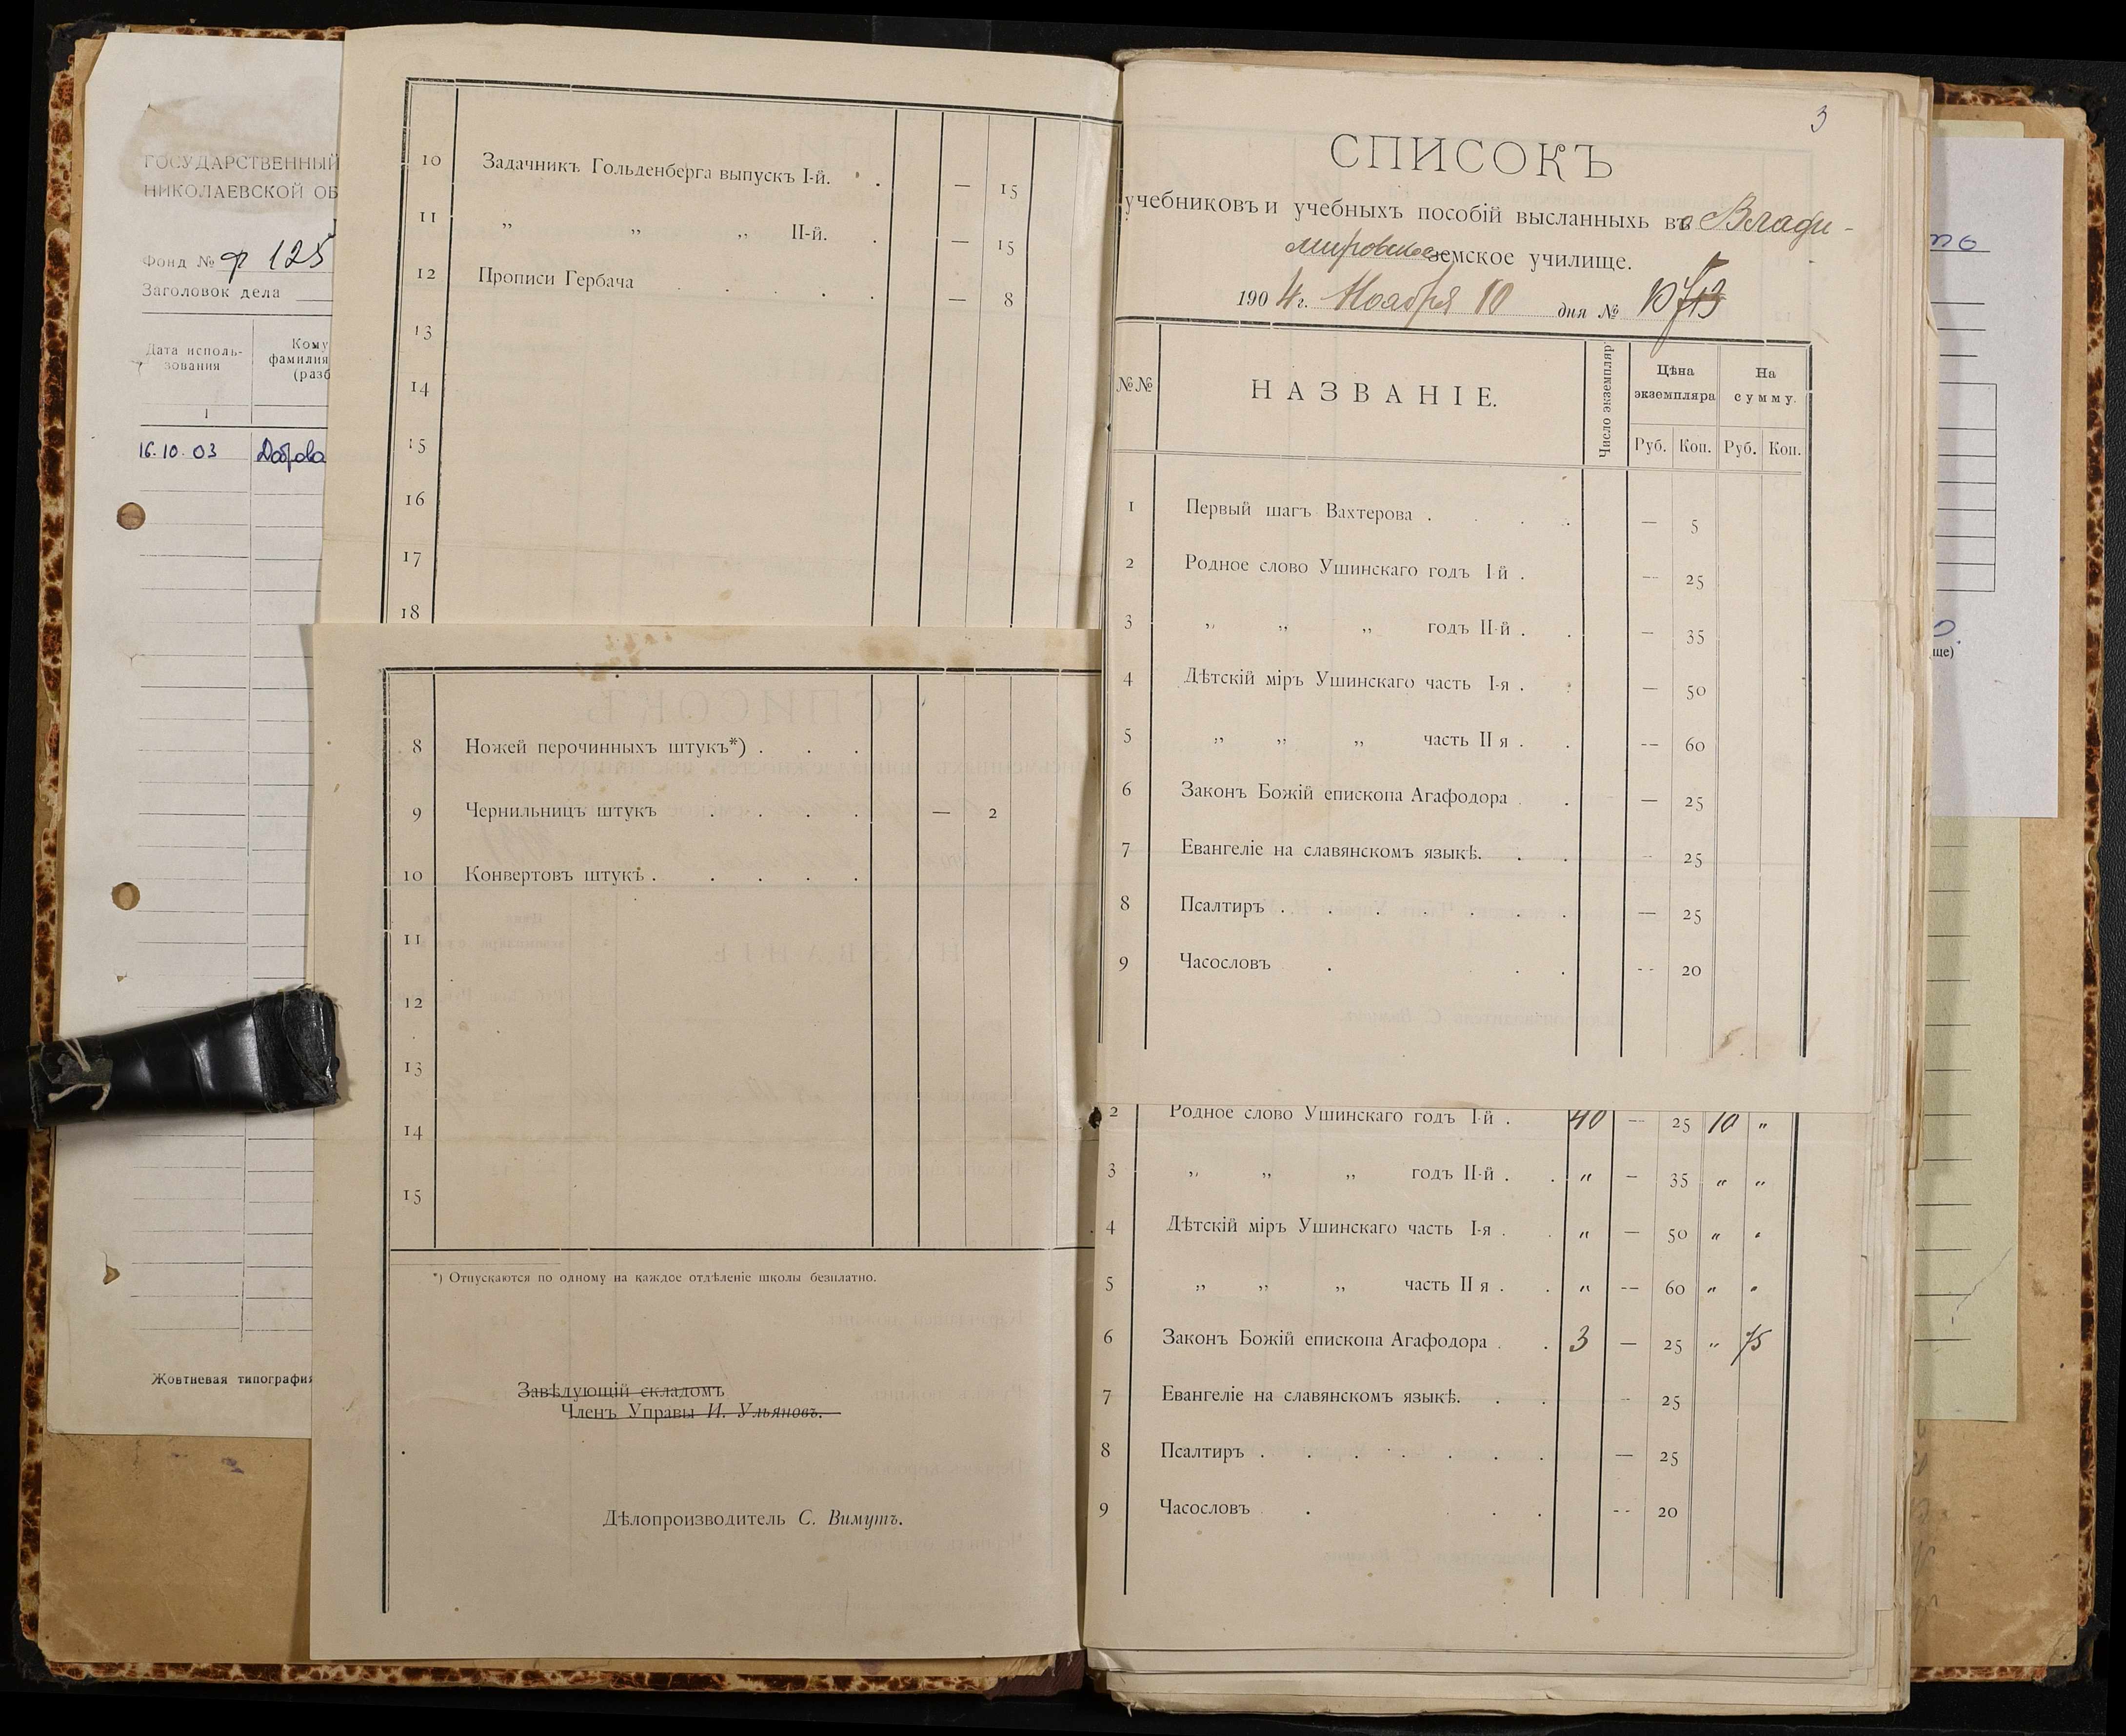 ГОСУДАРСТВЕННЫЙ
НИКОЛАЕВСКОЙ ОБ
Фонд № ф 125
Заголовок дела
Дата исполь-
зования
Кому
фамилия
(разб
1
16.10.03 Доброва
Жовтневая типография
10 Задачникъ Гольденберга выпускъ I-й. — 15
11 „ „ „ II-й. — 15
12 Прописи Гербача — 8
13
14
15
16
17
18
8 Ножей перочинныхъ штукъ*)
9 Чернильницъ штукъ — 2
10 Конвертовъ штукъ
11
12
13
14
15
*) Отпускаются по одному на каждое отдѣленіе школы безплатно.
Завѣдующій складомъ
Членъ Управы И. Ульяновъ.
Дѣлопроизводитель С. Вимутъ.
3
СПИСОКЪ
учебниковъ и учебныхъ пособій высланныхъ въ Влади-
мировское земское училище.
1904 г. Ноября 10 дня №
№№ НАЗВАНІЕ. Число экземпляр Цѣна экземпляра На сумму.
Руб. Коп. Руб. Коп.
1 Первый шагъ Вахтерова . — 5
2 Родное слово Ушинскаго годъ I-й . — 25
3 „ „ „ годъ II-й . — 35
4 Дѣтскій міръ Ушинскаго часть I-я . — 50
5 „ „ „ часть II я . — 60
6 Законъ Божій епископа Агафодора . — 25
7 Евангеліе на славянскомъ языкѣ. — 25
8 Псалтирь . — 25
9 Часословъ . — 20
2 Родное слово Ушинскаго годъ I-й . 40 — 25 10 „
3 „ „ „ годъ II-й . „ — 35 „ „
4 Дѣтскій міръ Ушинскаго часть I-я . „ — 50 „ „
5 „ „ „ часть II я . „ — 60 „ „
6 Законъ Божій епископа Агафодора . 3 — 25 „ 75
7 Евангеліе на славянскомъ языкѣ. — 25
8 Псалтирь . — 25
9 Часословъ . — 20
ще)